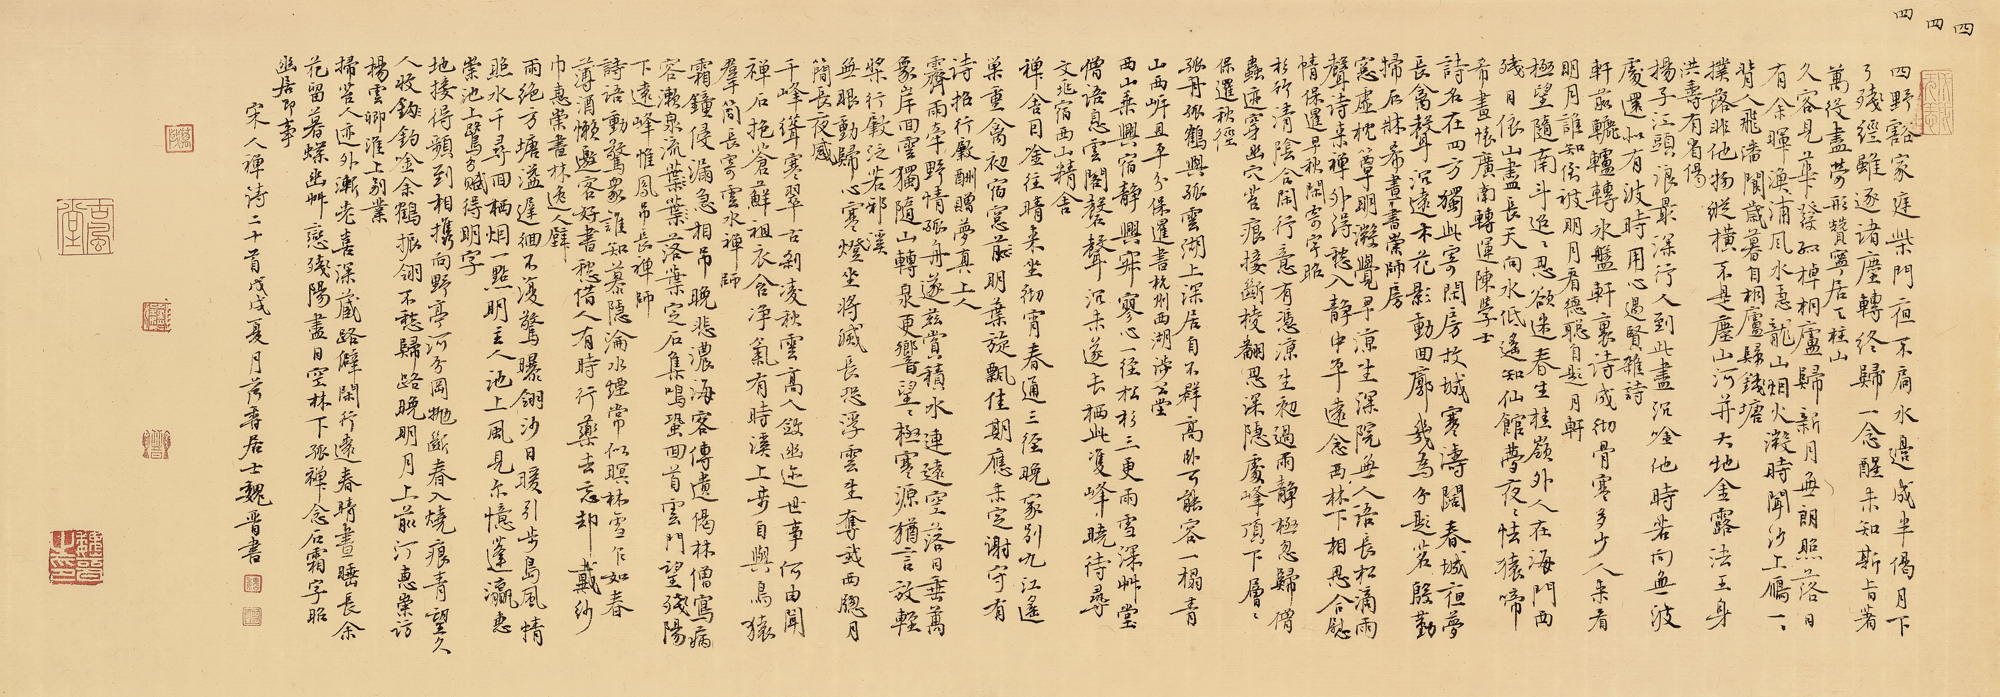 四野豁家庭柴門夜不扃水邊成半偈月下
了殘經雖逐諸塵轉終歸一念醒未知斯旨著
萬役盡勞形贊寧居天柱山
久容見華發孤棹桐廬歸新月無朗照落日
有余暉漁浦風水急龍山烟火微時聞沙上雁一一
背人飛潘閬歲暮自桐廬歸錢塘
撲落非他物縱橫不是塵山河並大地全露法王身
洪壽有省偈
揚子江頭浪最深行人到此盡沉吟他時若向無波
處還似有波時用心過賢雜詩
軒前轆轤轉水盤軒裏詩成徹骨寒多少人來看
明月誰知倒被明月看德聰自題月軒
極望隨南斗迢迢思欲迷春生桂嶺外人在海門西
殘日依山盡長天向水低遙知仙館夢夜夜怯猿啼
希晝懷廣南轉運陳學士
詩名在四方獨此寄閑房故城寒濤闊春城夜夢
長禽聲沉遠木花影動回廊幾為分題茗殷勤
掃石牀希晝書崇師房
窓虛枕簟明微覺早涼生深院無人語長松滴雨
聲詩來禪外得愁入靜中平遠念西林下相思合慰
情保暹早秋閑寄宇昭
杉竹清陰合閑行意有憑涼生初過雨靜極忽歸僧
蟲迹穿幽穴苔痕接斷棱翻思深隱處峰頂下層層
保暹秋徑
孤舟孤鶴與孤雲湖上深居自不群高卧可能容一榻青
山西畔且平分保暹書杭州西湖涉公堂
西山乘興宿靜興寂寥心一徑松杉三更雨雪深草堂
僧語息雲閣磬聲沉未遂去栖此雙峰曉待尋
文兆宿西山精舍
禪舍因吟往晴來坐徹宵春通三徑晚家別九江遙
巢重禽初宿窓前明葉旋飄佳期應未定謝守有
詩招行肇酬贈夢真上人
霽雨牽野情孤舟遂茲賞積水連遠空落日垂萬
象岸回雲獨隨山轉泉更響望望極寒源猶言放輕
槳行肇泛若邪溪
無眼動歸心寒燈坐將滅長恐浮雲生奪我西窓月
簡長夜感
千峰聳寒翠古剎凌秋雲高人斂幽迹世事何由聞
禪石抱蒼蘚祖衣含淨氣有時溪上步自與鳥猿
羣簡長寄雲水禪師
霜鐘侵漏急相吊晚悲濃海客傳遺偈林僧寫病
容漱泉流葉葉落葉定石集鳴蛩回首雲門望殘陽
下遠峰惟鳳吊長禪師
詩語動驚眾誰知慕隱淪水煙常似暝林雪乍如春
薄酒懶邀客好書愁借人有時行藥去忘却戴紗
巾惠崇書林逸人壁
雨絕方塘溢遲徊不復驚曝翎沙日暖引步島風情
照水千尋迥栖烟一點明主人池上風見爾憶蓬瀛惠
崇池上鷺分賦得明字
地接得頻到相攜向野亭河分岡拋斷春入燒痕青望久
人收釣吟余鶴振翎不愁歸路晚明月上前汀惠崇訪
楊雲卿淮上別業
掃苔人迹外漸老喜深藏路僻閑行遠春晴晝睡長余
花留暮蝶幽草戀殘陽盡日空林下孤禪念石霜宇昭
幽居即事
宋人禪詩二十首戊戌夏月芳香居士魏晉書